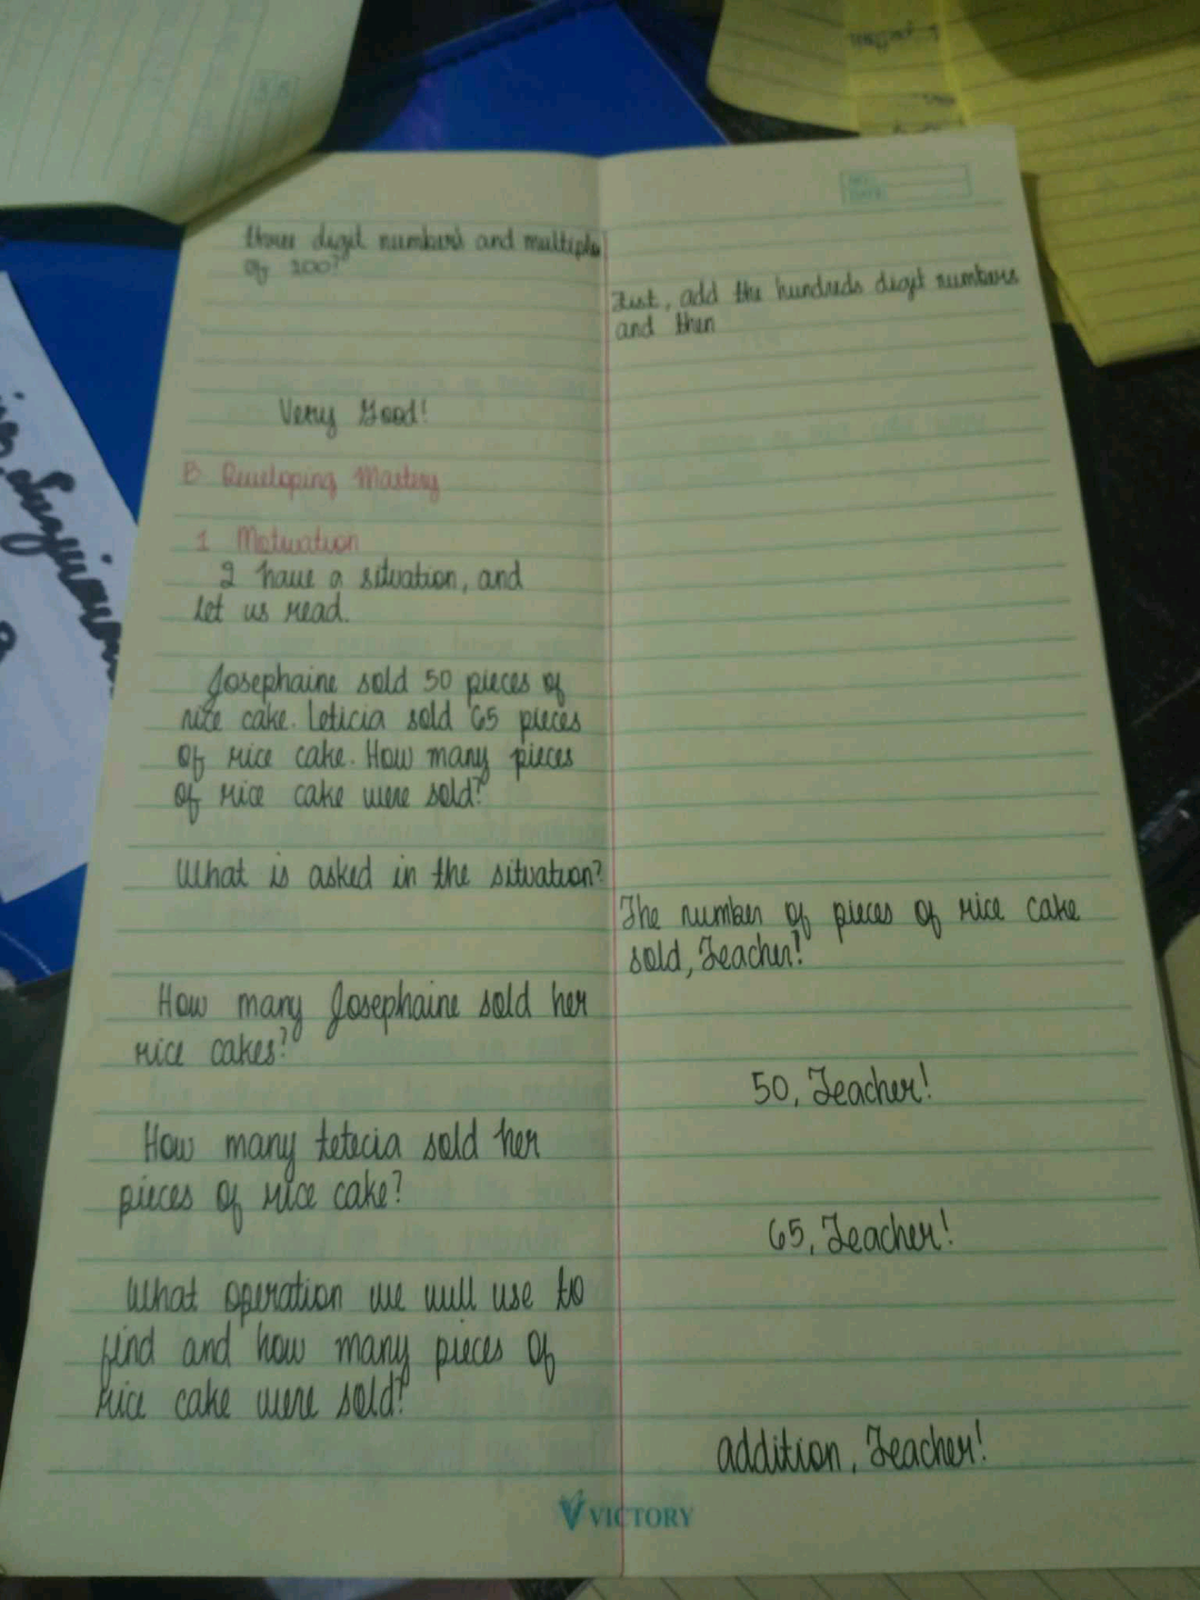 three digit numbers and multiple
of 100?
Just, add the hundreds digit numbers
and then
Very Good!
B. Developing Mastery
1. Motivation
I have a situation, and
let us read.
Josephaine sold 50 pieces of
rice cake. Leticia sold 65 pieces
of rice cake. How many pieces
of rice cake were sold?
What is asked in the situation?
The number of pieces of rice cake
sold, Teacher!
How many Josephaine sold her
rice cakes?
50, Teacher!
How many Letecia sold her
pieces of rice cake?
65, Teacher!
What operation we will use to
find and how many pieces of
rice cake were sold?
addition, Teacher!
VICTORY